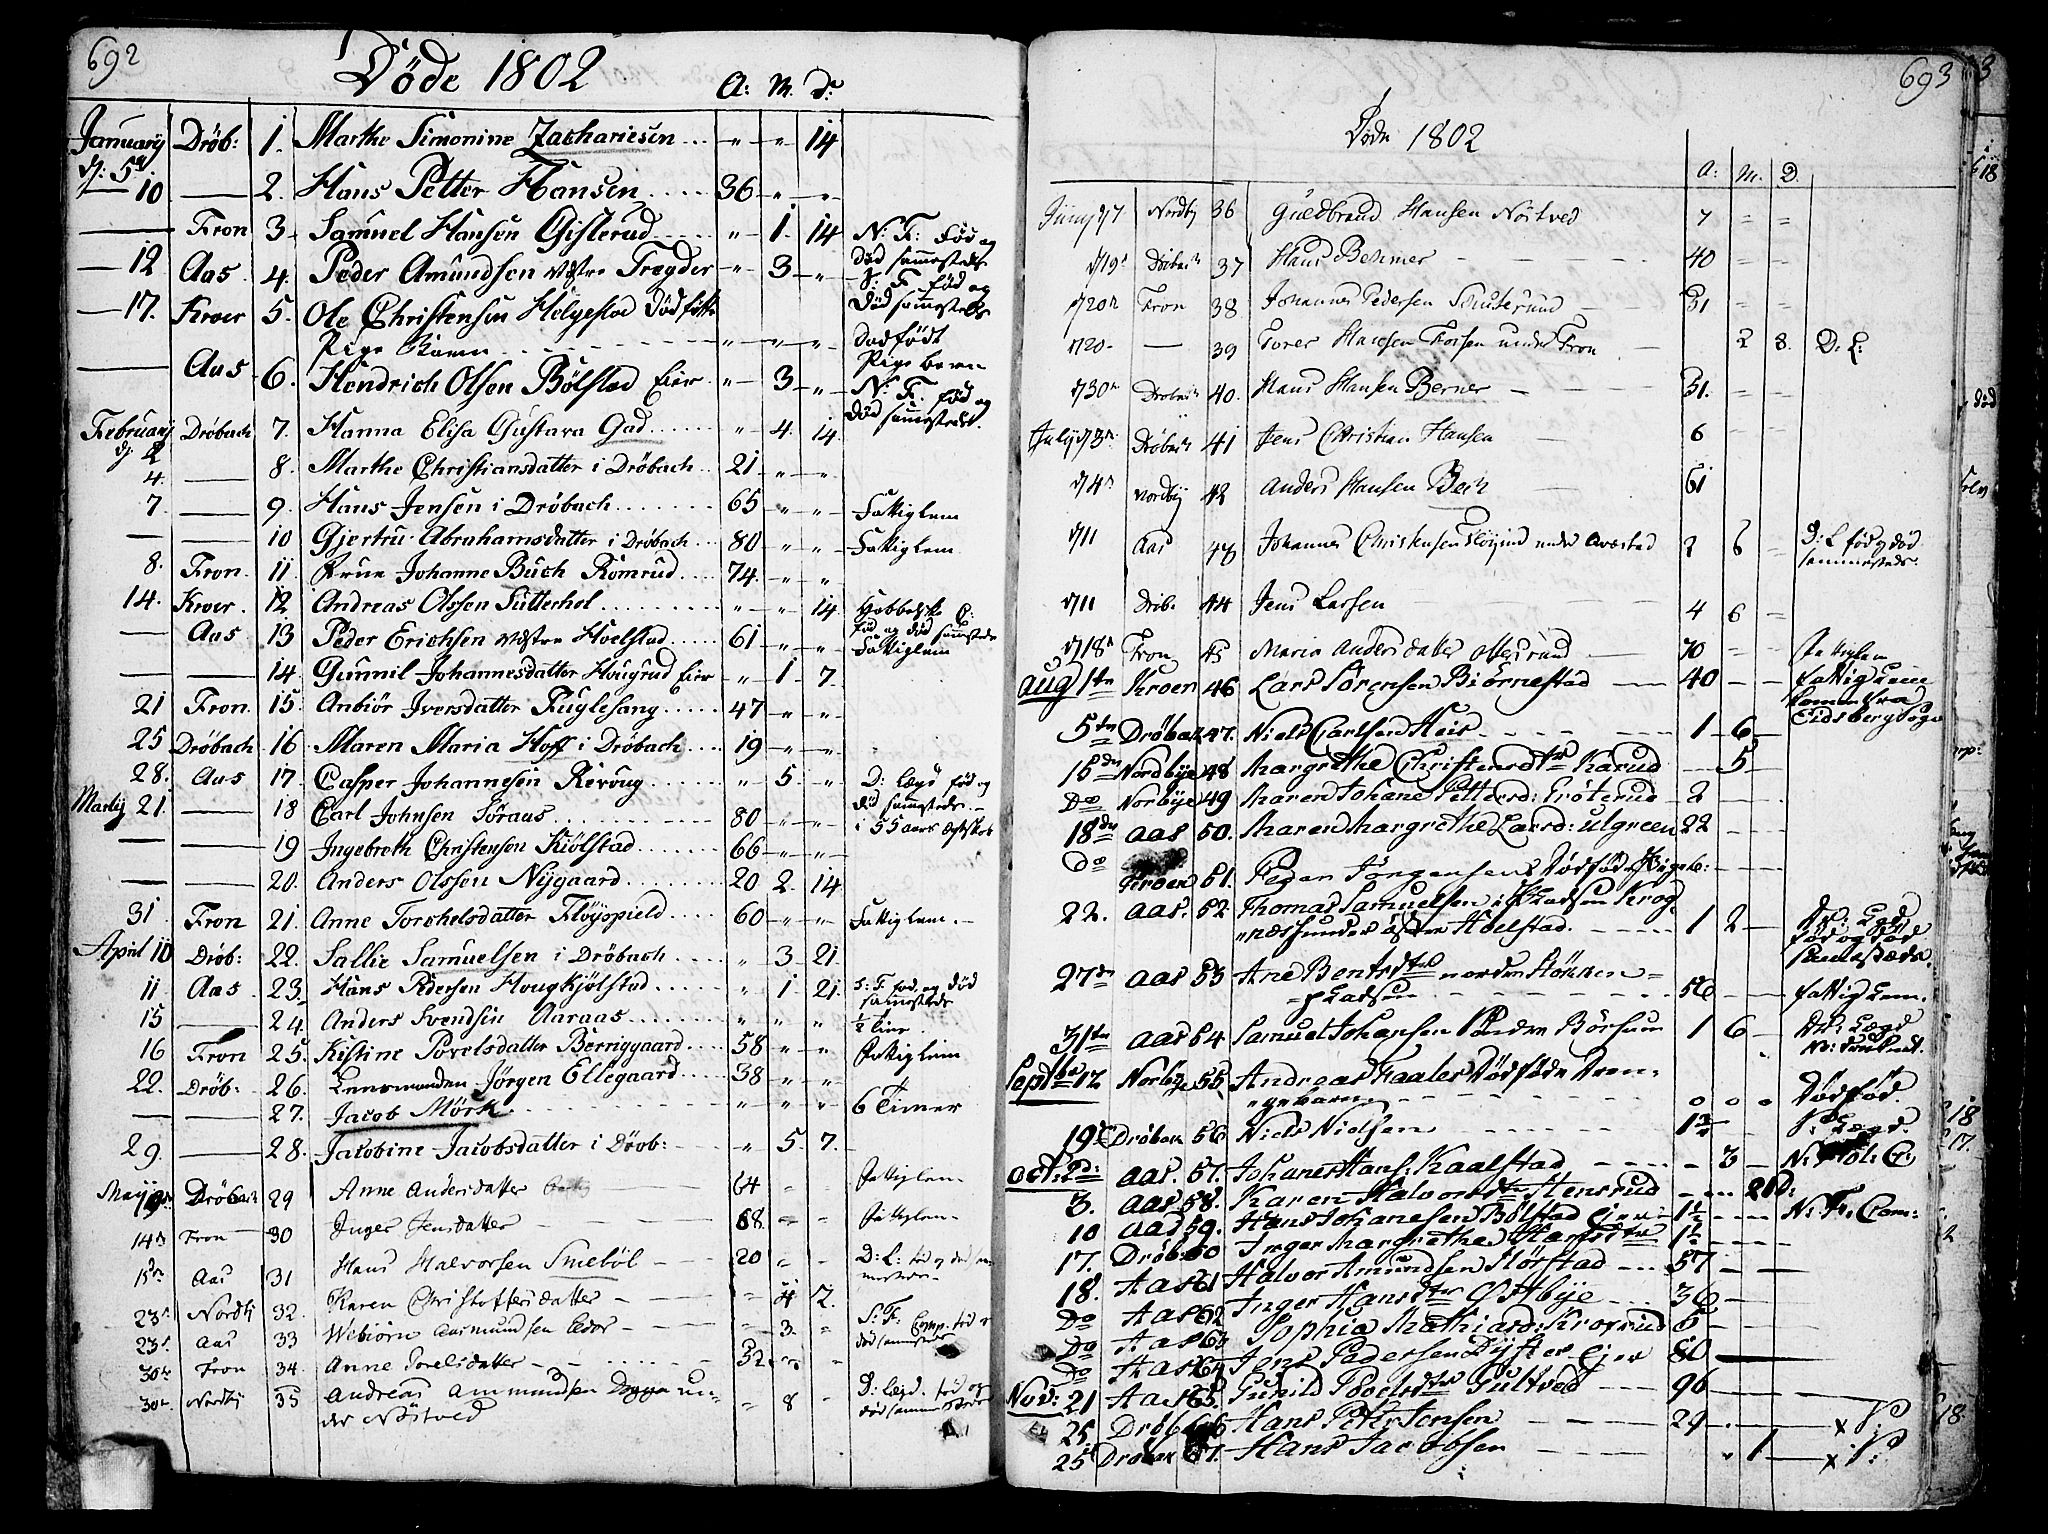 692
Döde 1802
A: M. D:
Januarij
d: 5te Dröb: 1. Marthe Simonine Zachariesen " " 14
— 10 — 2. Hans Petter Hansen 36 " "
— Fron 3 Samuel Hansen Gislerud " 1 14 N: F: fød og
død sammesteds
— 12 Aas 4. Peder Amundsen vestre Tregder " 3 " S: F. fød og
død sammesteds
— 17. Kroer 5. Ole Christensen Helgestad dödföt
Pige Barn " " " dødfödt
Pige barn
— Aas 6. Hendrich Olsen Bölstad Eier " 3 " N: F. fød og
død sammestedt.
Februarij
d: 2 Dröbach 7. Hanna Elisa Gustava Gad " 4. 14.
4. — 8. Marthe Christiansdatter i Dröbach 21 " "
7 — 9. Hans Jensen i Dröbach 65 " " Fattiglem
— — 10 Gjertru Abrahamsdatter i Dröbach 80 " " Fattiglem
8. Fron. 11. Frue Johanne Buch Römrud 74. " "
14. Kroer. 12 Andreas Olssen Sutterhol " " 14
fød og død sammesteds
— Aas 13 Peder Erichsen vestre Hoelstad 61 " " Fattiglem
— — 14. Gunnil Johannesdatter Hougrud Eier " 1 7.
21 Fron. 15. Anbiör Iversdatter Fuglesang 47 " "
25 Dröbach 16. Maren Maria Hoff i Dröbach 19 " "
28. Aas 17. Casper Johannesen Revoug " 5. " D: Lægd fød og
død sammesteds.
Martij 21. — 18 Carl Johnsen Söraas 80 " " i 55 aars Egteskab
— — 19 Ingebreth Christensen Kiölstad 66 " "
— — 20. Anders Olssen Nijgaard 20 2. 14
31. Fron 21. Anne Torchelsdatter Flöyspield 60 " " Fattiglem.
April 10 Dröb: 22. Sallie Samuelsen i Dröbach " 3 21
11 Aas 23. Hans Pedersen Hougkjölstad " 1 21. S: F. fød og død
sammesteds
15 — 24. Anders Svendsen Aaraas " " " 1/2 time.
16 Fron 25. Kistine Povelsdatter Berriggaard 58 " " Fattiglem
22. Dröb: 26. Lensmanden Jörgen Ellegaard 38 " "
— — 27. Jacob Mörk " " " 6 Timer
29. — 28. Jacobine Jacobsdatter i Dröb: " 5. 7.
Maij Dröbach 29 Anne Andersdatter 64 " " Fattiglem
14d Fron 30 Inger Jensdatter 68. " " Fattiglem
15de Aas 31 Hans Halvorsen Smeböl 20 " " D: L: fød og død sam-
mesteds
23d Nordbÿ 32. Karen Christoffersdatter " 4 2.
23d Aas 33 Webiörn Aasmundsen " 3. " S: F: Comp. fød og
død sammesteds
30te Fron 34. Anne Povelsdatter 32 " "
30te Nordbÿ 35 Andreas Ammundsen Dogge un-
der Nöstved " 8 " D: Lægd. fød og
død sammesteds

693
Döde 1802
A: M. D.
Junij d 7 Nordbÿ 36 Guldbrand Hansen Nöstved 7 = =
d 19d Dröbach 37 Hans Behmer 40 = =
d 20de Fron 38 Johannes Pedersen Souterund 31 = =
d 20 — 39 Torer Hansen Forsen under Fron 2 8. D. L:
d 30te Dröbach 40. Hans Hansen Berner 31. = =
Julij d 3de Dröbach 41 Jens Christian Hansen 6 = =
d 4de Nordbÿ 42 Anders Hansen Bech 61
d 11 Aas 43 Johannes Christensen under Aarstad 2 6 = D: L fød og død
sammesteds.
d 11 Dröb. 44 Jens Larsen 4 6 =
d 18de Fron 45 Maria Andersdatter Ottersrund 70 = = Fattiglem
Aug 1te Kroen 46 Lars Sörensen Biörnestad 40 — — Fattig Lem
Kommen fra
Eidsberg Sogn
5te Dröbak 47. Niels Carlsen Heir 1 6
15de Nordbÿe 48 Margrethe Christensdtr Karud — 5
Do Norbÿe 49 Maren Johane Pettersd: Fröterud 2
18de Aas 50. Maren Margrethe Larsd: Ulgreen 22
Do Kroen 51. Peder Jörgensens Dödföde Pigeb:
22. Aas. 52 Thomas Samuelsen i Pladsen Krog-
næs under östre Hoelstad. 1 2 Dr: Lægd
fød og Död
sammesteds.
27de Aas 53 Ane Bentsdtr norden Störken
pladsen 56 Fattig Lem.
31te Aas 54 Samuel Johansen Söndre Börsum 1 6 Dr: Lægd
Septbr 12 Norbÿe 55 Andreas Faales Dödföde Dren-
gebarn o o o Dödföd.
19de Dröbak 56 Niels Nielsen 1 1/2
Oct: 2d: Aas. 57. Johanes Hans: Kaalstad — 3 —
3. Aas 58. Karen Halvorsdtr Stensrud — — 21d:
10 Aas 59. Hans Johanesen Bölstad Ejer 1 1/2 — N: F. Com:
17. Dröb 60 Inger Margrethe Hansdtr 1 1/2
18. Aas 61 Halvor Amundsen Störstad 57
Do Aas 62 Inger Hansdtr Östbÿe 36
Do Aas 63 Sophia Mathiasd: Kroxrud 6
Do Aas 64 Jens Pedersen Dÿster Ejer 80
Nov: 21 Aas 65. Gunild Povelsdtr Gultved 96
25. Dröb 66 Hans Peter Jensen 29 x V:
25 Dröbak 67. Hans Jacobsen 1 x V: